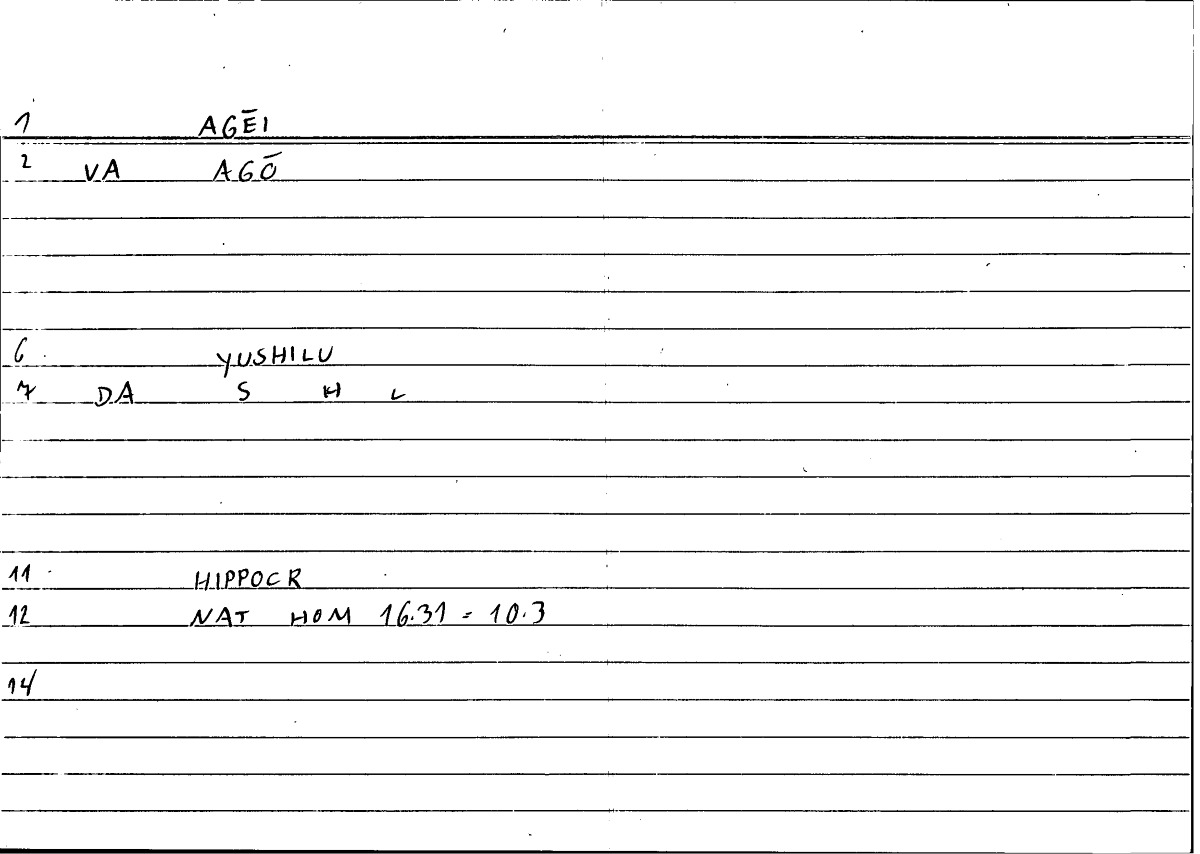 1 AGĒI
2 VA AGŌ
6 YUSHILU
7 DA S H L
11 HIPPOCR
12 NAT HOM 16.31 = 10.3
14